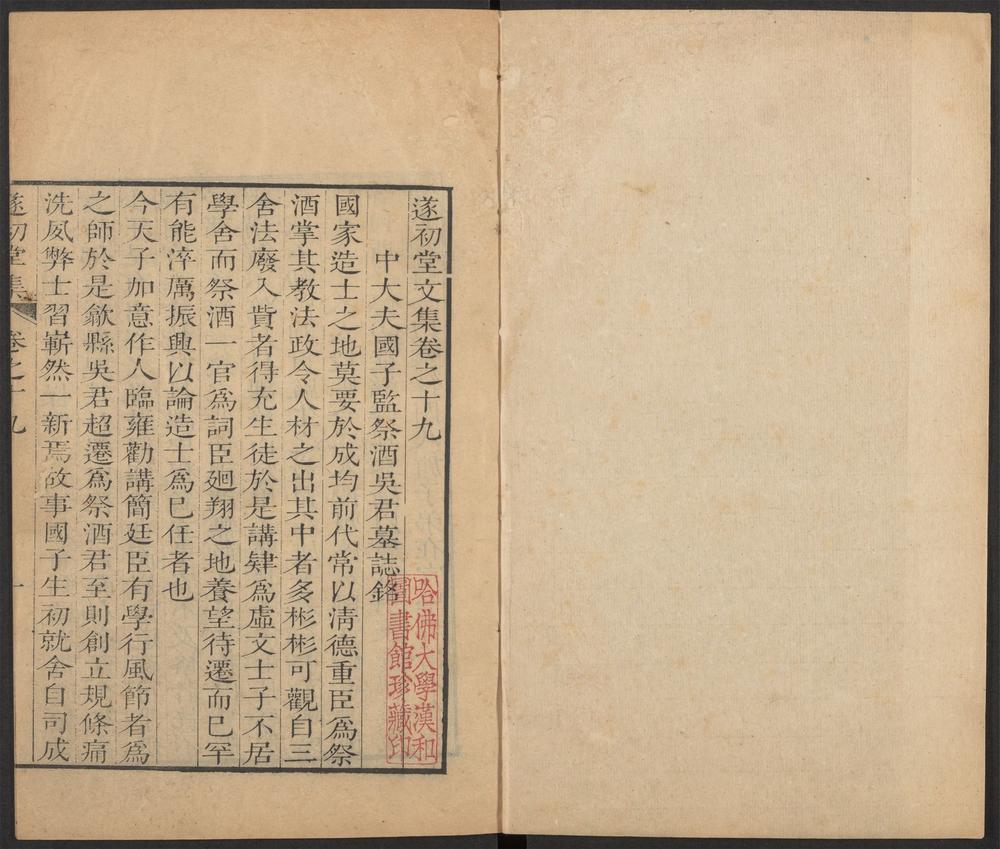 遂初堂文集卷之十九
中大夫國子監祭酒吳君墓誌銘
國家造士之地莫要於成均前代常以清德重臣爲祭
酒掌其教法政令人材之出其中者多彬彬可觀自三
舍法廢入貲者得充生徒於是講肄爲虛文士子不居
學舍而祭酒一官爲詞臣廻翔之地養望待遷而已罕
有能淬厲振興以論造士爲己任者也
今天子加意作人臨雍勸講簡廷臣有學行風節者爲
之師於是歙縣吳君超遷爲祭酒君至則創立規條痛
洗夙弊士習嶄然一新焉故事國子生初就舍自司成
遂初堂集 卷之十九 一
哈佛大學漢和
圖書館珍藏印